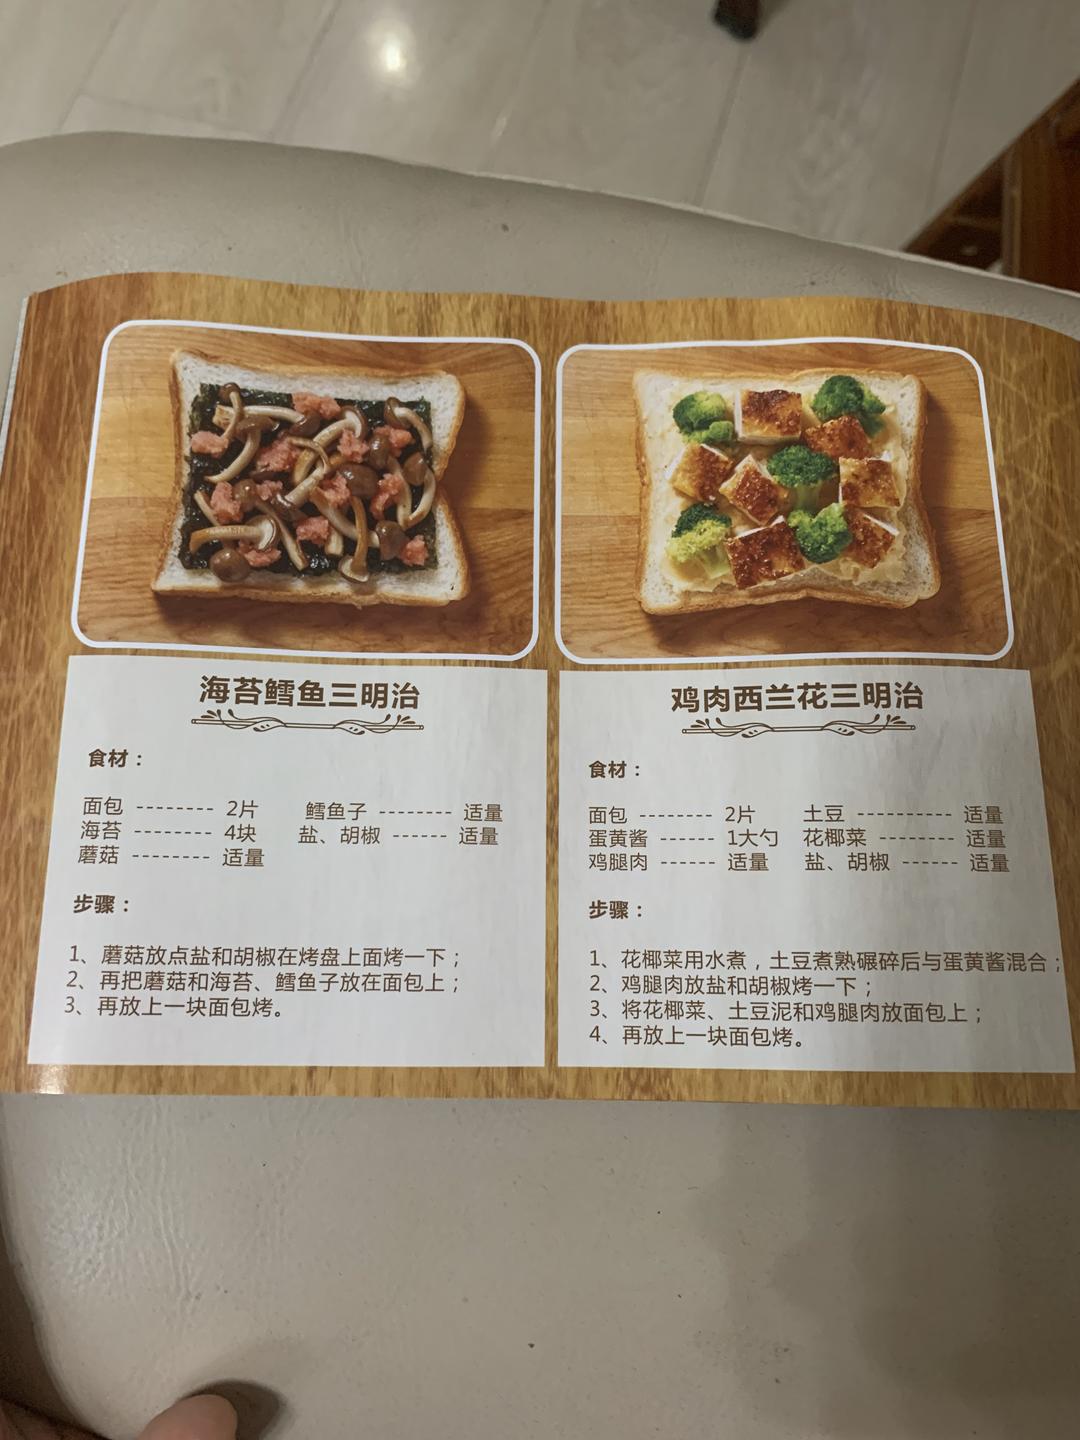 海苔鳕鱼三明治
食材：
面包 -------- 2片 鳕鱼子 -------- 适量
海苔 -------- 4块 盐、胡椒 ------ 适量
蘑菇 -------- 适量
步骤：
1、蘑菇放点盐和胡椒在烤盘上面烤一下；
2、再把蘑菇和海苔、鳕鱼子放在面包上；
3、再放上一块面包烤。
鸡肉西兰花三明治
食材：
面包 -------- 2片 土豆 ---------- 适量
蛋黄酱 ------ 1大勺 花椰菜 -------- 适量
鸡腿肉 ------ 适量 盐、胡椒 ------ 适量
步骤：
1、花椰菜用水煮，土豆煮熟碾碎后与蛋黄酱混合；
2、鸡腿肉放盐和胡椒烤一下；
3、将花椰菜、土豆泥和鸡腿肉放面包上；
4、再放上一块面包烤。